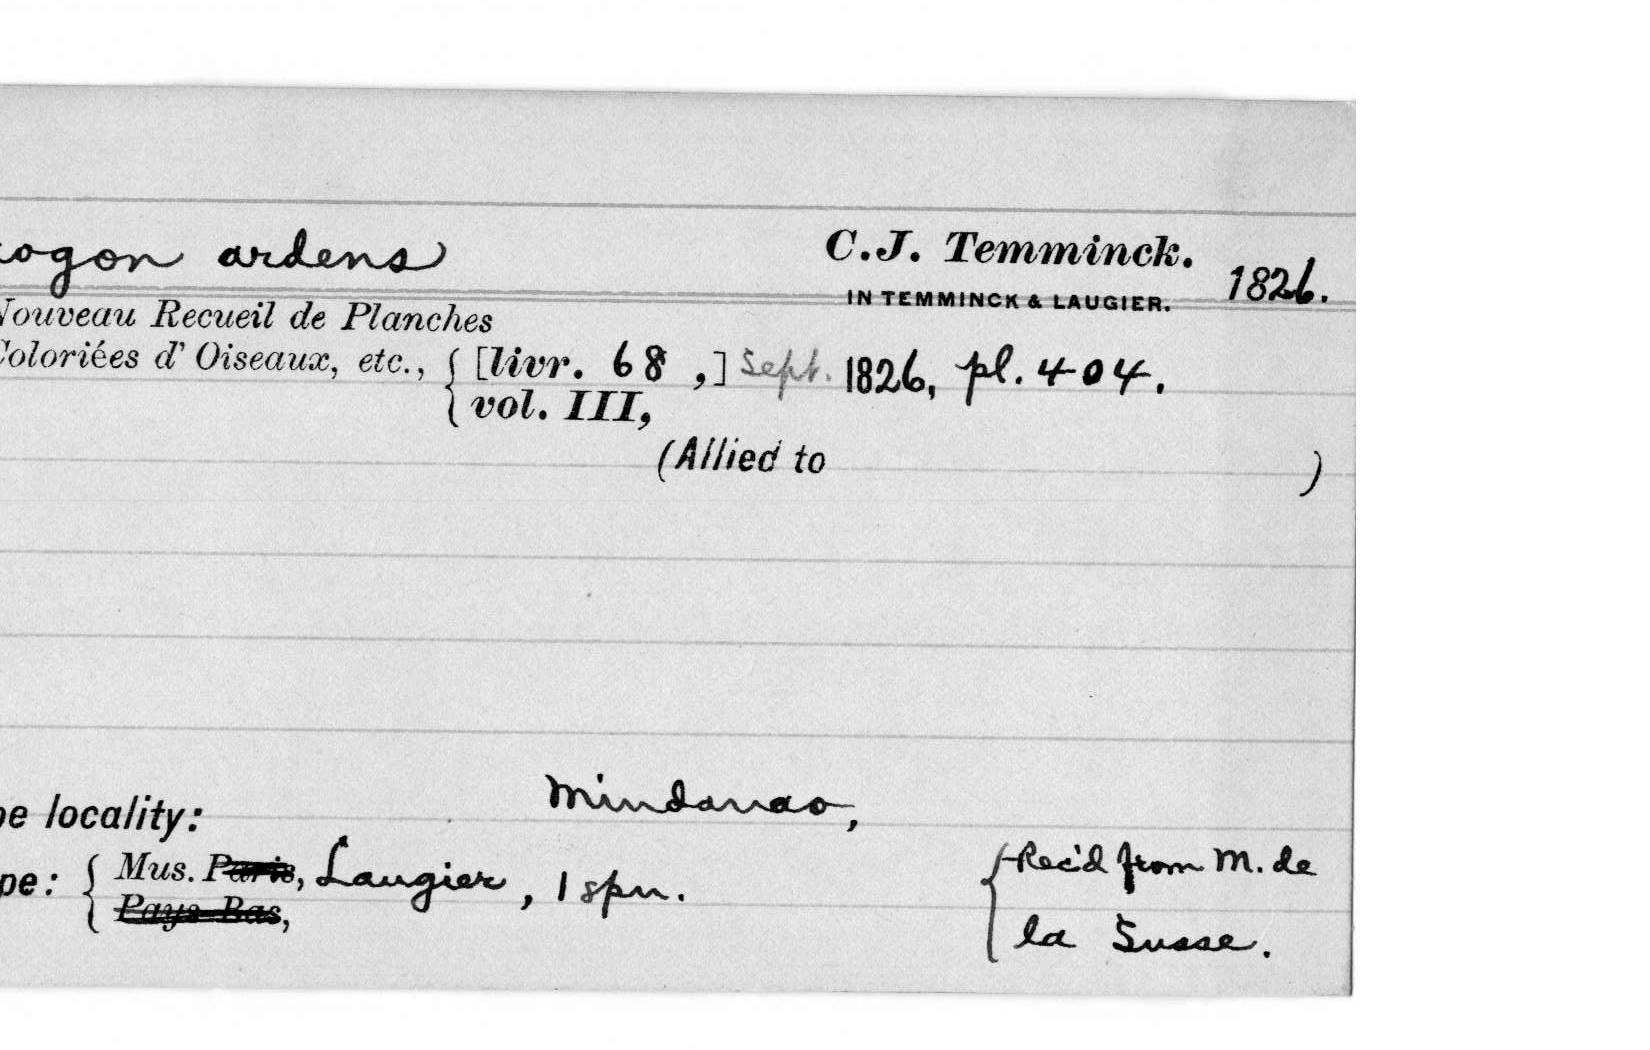 rogon ardens
C.J. Temminck. 1826.
IN TEMMINCK & LAUGIER.
Nouveau Recueil de Planches
Coloriées d' Oiseaux, etc., { [livr. 68 ,] Sept. 1826, pl. 404.
vol. III,
(Allied to )
Mindanao,
pe locality:
pe: { Mus. Paris, Laugier, 1 spn. { Rec'd from M. de
Pays-Bas, la Susse.